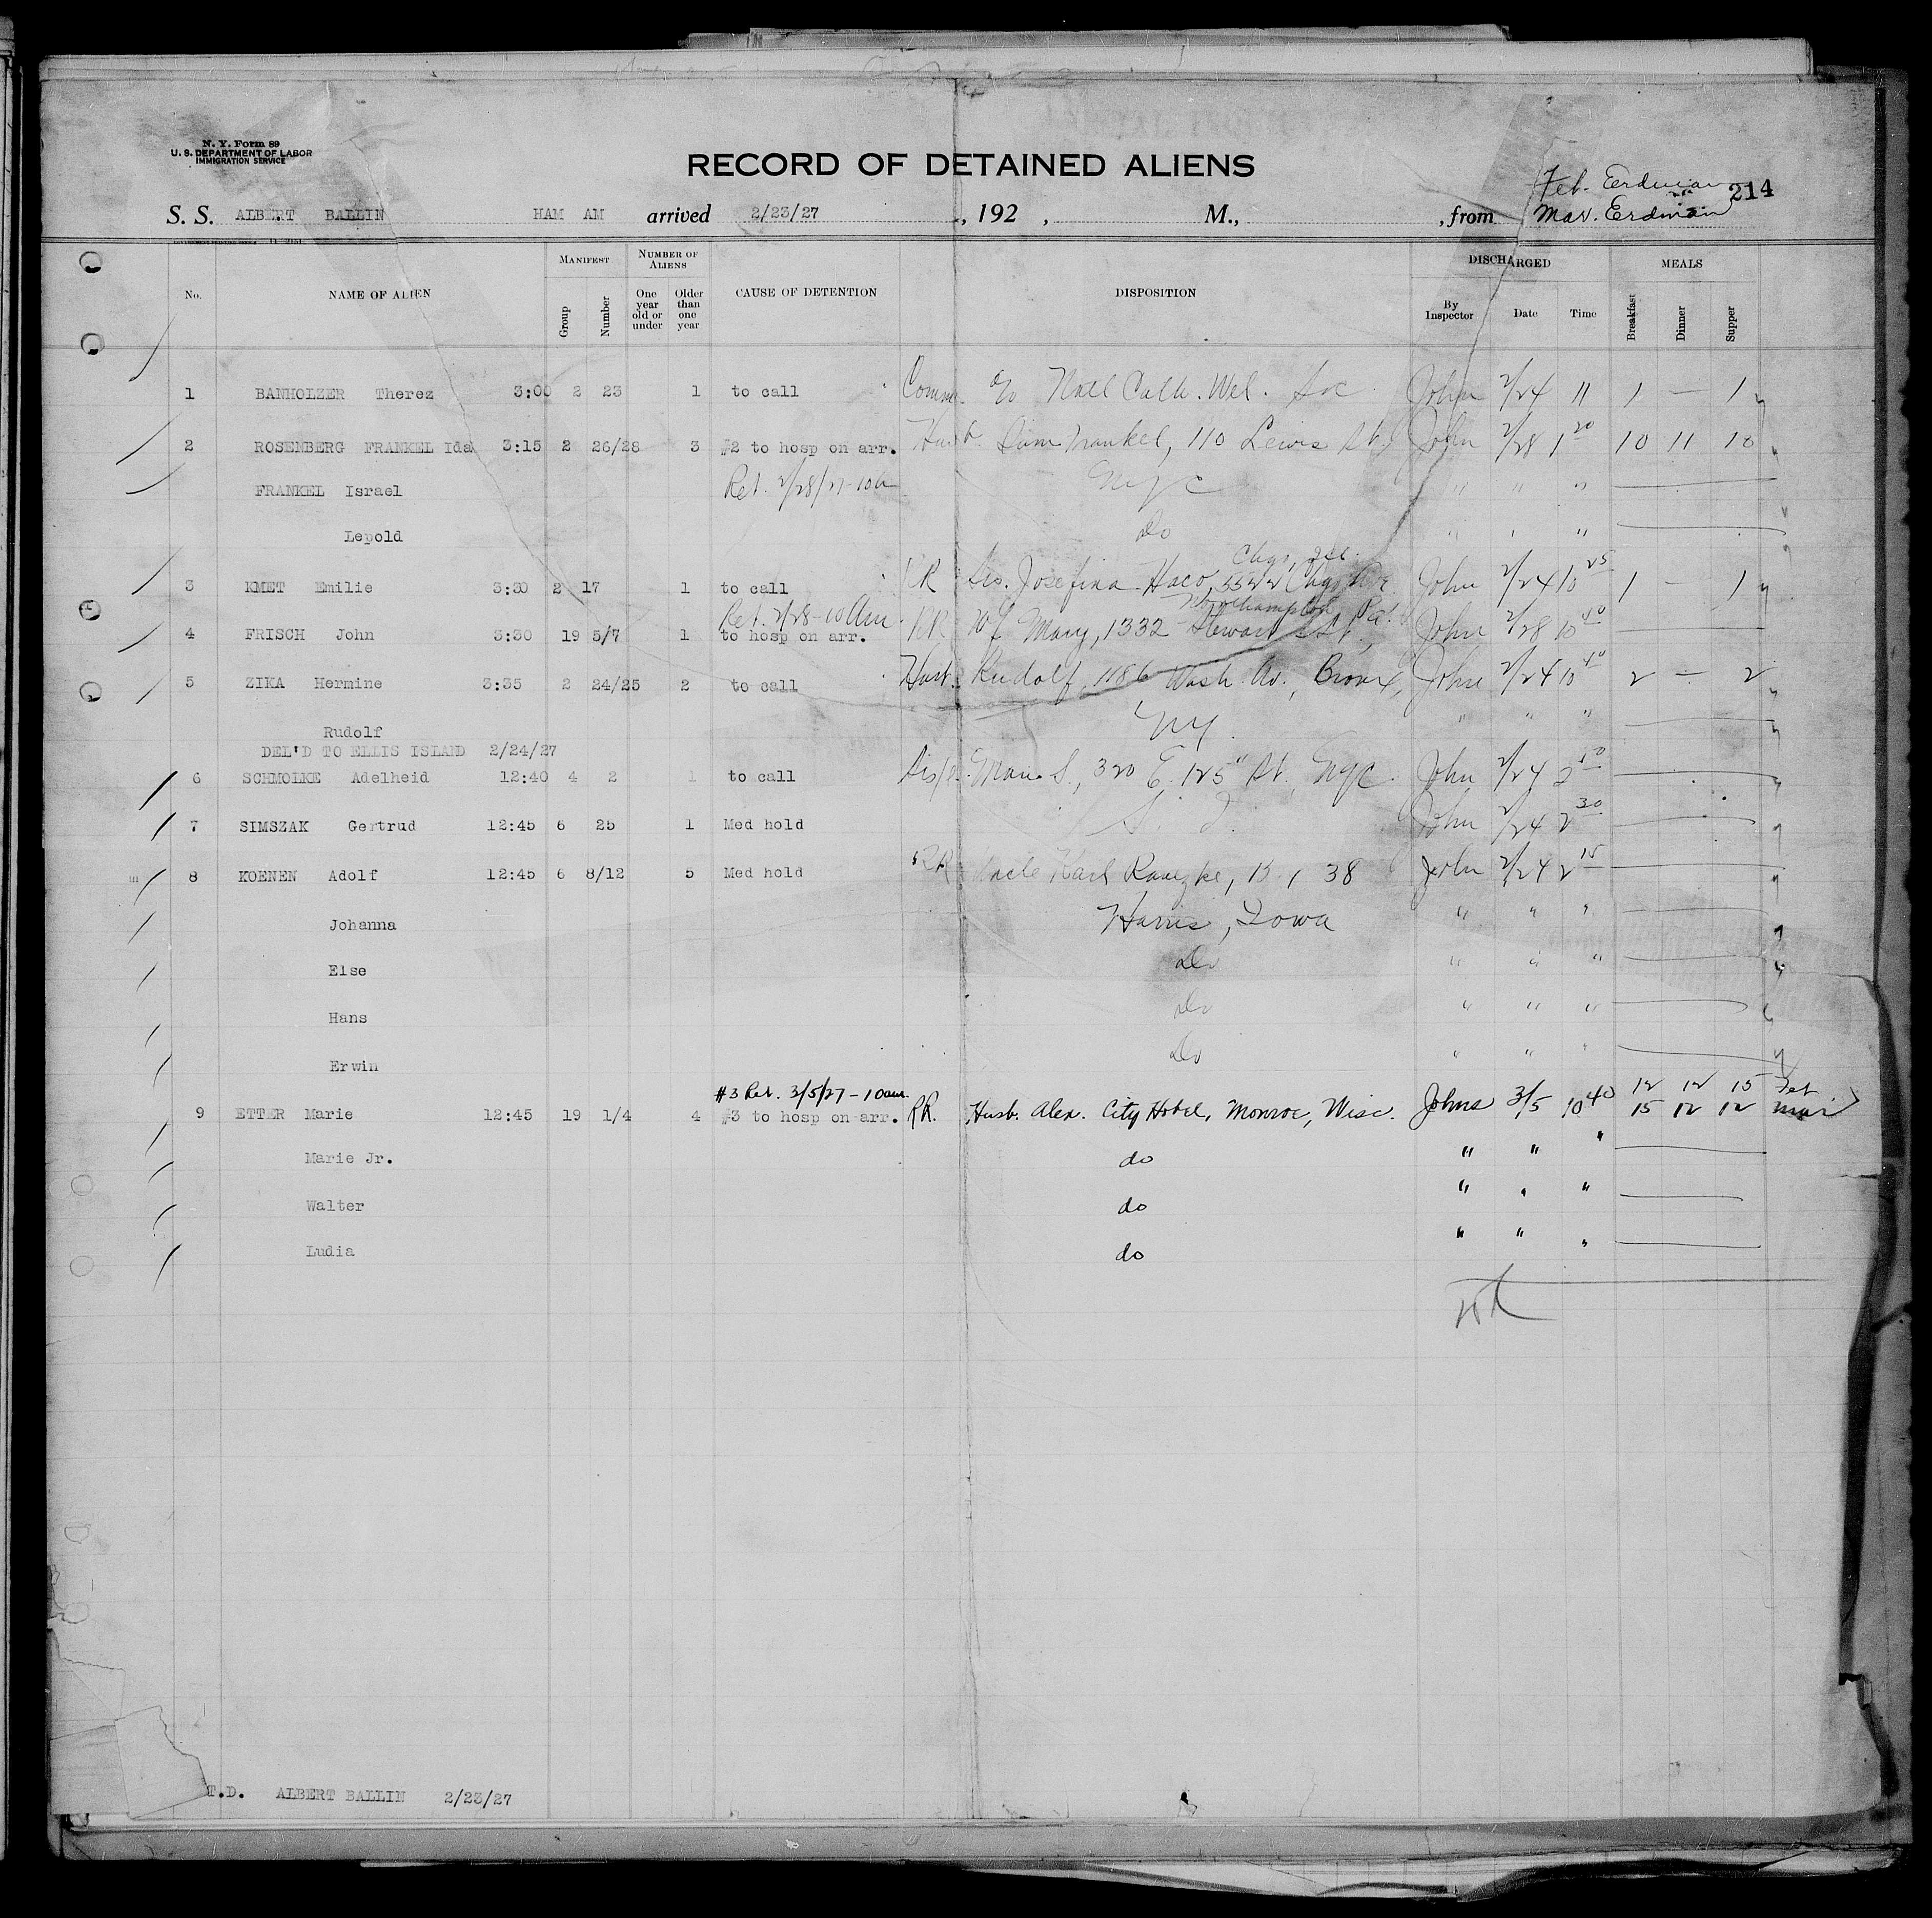 N. Y. Form 89
U. S. DEPARTMENT OF LABOR
IMMIGRATION SERVICE
RECORD OF DETAINED ALIENS
Feb. Erdman
214
S. S. ALBERT BALLIN HAM AM arrived 2/23/27, 192 , M., , from Mar. Erdman
No. NAME OF ALIEN MANIFEST Group Number NUMBER OF ALIENS One year old or under Older than one year CAUSE OF DETENTION DISPOSITION DISCHARGED By Inspector Date Time MEALS Breakfast Dinner Supper
1 BANHOLZER Therez 3:00 2 23 1 to call c/o Natl Cath. Wel. John 2/24 11 1 — 1
2 ROSENBERG FRANKEL Ida 3:15 2 26/28 3 #2 to hosp on arr. Husb. Sam Frankel, 110 Lewis St. John 2/28 1 20 10 11 10
FRANKEL Israel Ret. 2/28/27-10a NYC " " "
Lepold Do " " "
Chgo, Ill.
3 KMET Emilie 3:30 2 17 1 to call RR Sis. Josefina Haco, Chgo Ave John 2/24 10 25 1 — 1
Ret. 2/28-10am Northampton, Pa.
4 FRISCH John 3:30 19 5/7 1 to hosp on arr. RR Wf Mary, 1332 Stewart St. John 2/28 10 40
5 ZIKA Hermine 3:35 2 24/25 2 to call Husb. Rudolf, 1186 Wash Av., Bronx, John 2/24 10 40 2 — 2
Rudolf NY. " " "
DEL'D TO ELLIS ISLAND 2/24/27
6 SCHMOLKE Adelheid 12:40 4 2 1 to call S., 320 E. 125" St., NYC. John 2/24 2 50
7 SIMSZAK Gertrud 12:45 6 25 1 Med hold S. I. John 2/24 2 30
8 KOENEN Adolf 12:45 6 8/12 5 Med hold RR Uncle Karl 38 John 2/24 2 15
Johanna Harris, Iowa " " "
Else Do " " "
Hans Do " " "
Erwin Do " " "
#3 Ret. 3/5/27-10am. 12 12 15 Feb
9 ETTER Marie 12:45 19 1/4 4 #3 to hosp on arr. RR. Husb. Alex. City Hotel, Monroe, Wisc. Johns 3/5 10 40 15 12 12 Mar
Marie Jr. do " " "
Walter do " " "
Ludia do " " "
T.D. ALBERT BALLIN 2/23/27